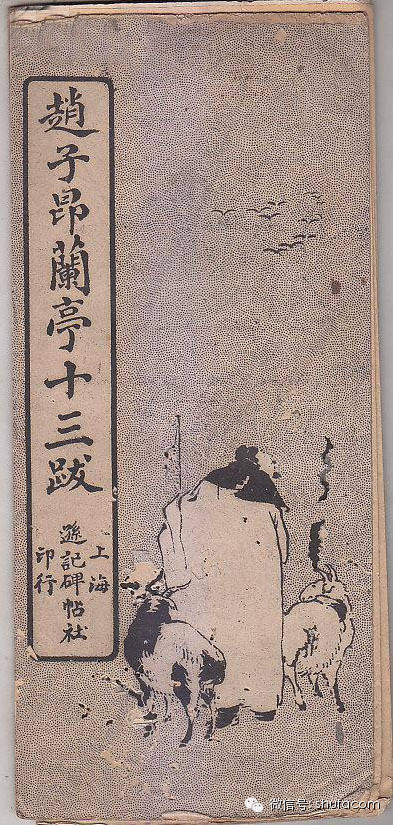 趙子昂蘭亭十三跋
上海
遜記碑帖社
印行
微信号: shufacom